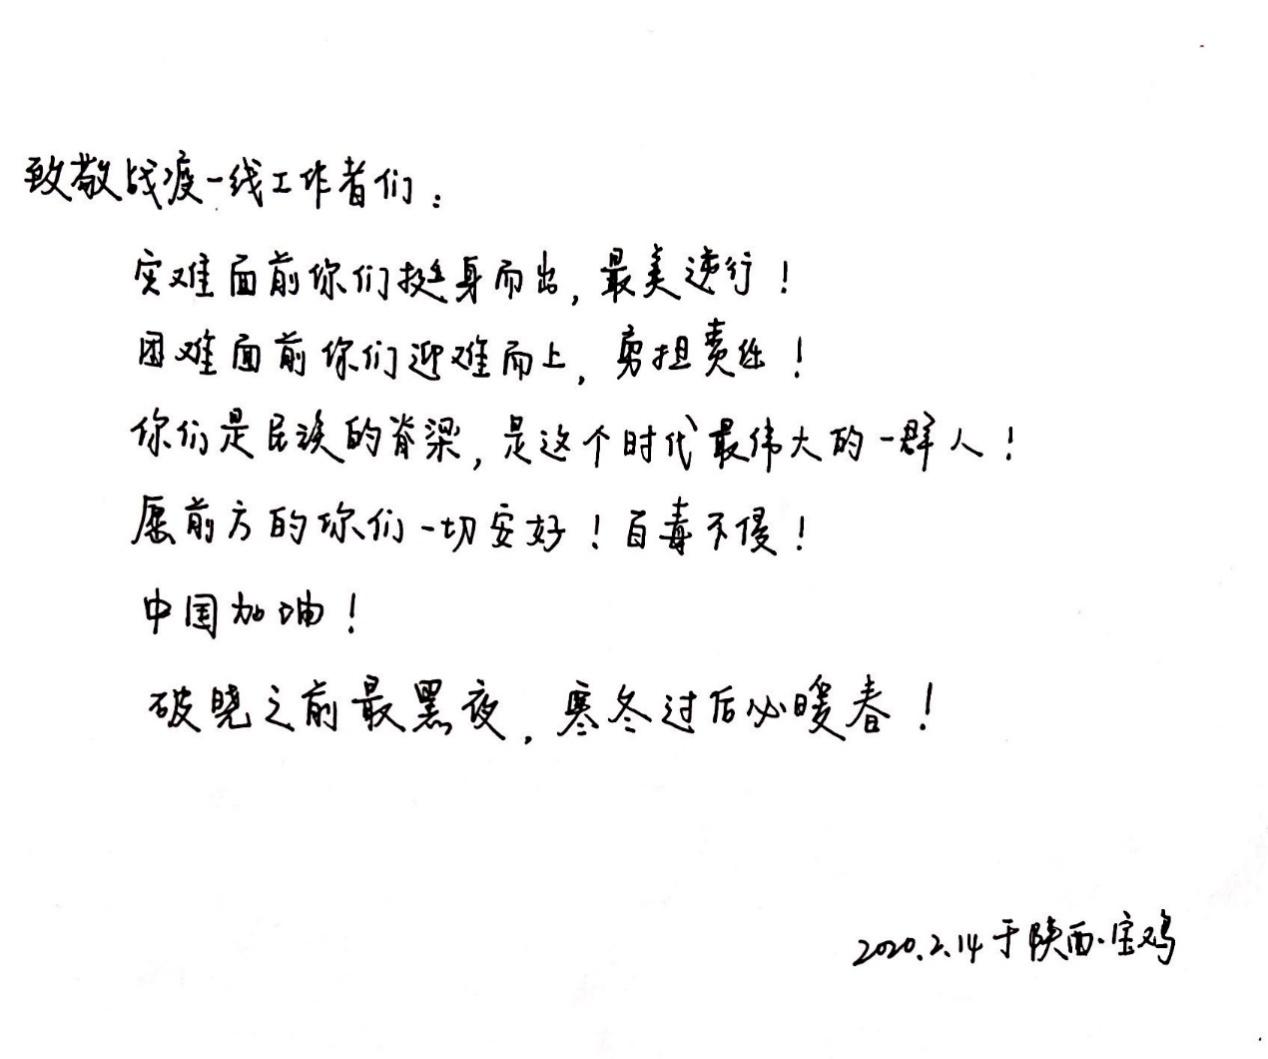 致敬战疫一线工作者们：
灾难面前你们挺身而出，最美逆行！
困难面前你们迎难而上，勇担责任！
你们是民族的脊梁，是这个时代最伟大的一群人！
愿前方的你们一切安好！百毒不侵！
中国加油！
破晓之前最黑夜，寒冬过后必暖春！
2020.2.14于陕西·宝鸡